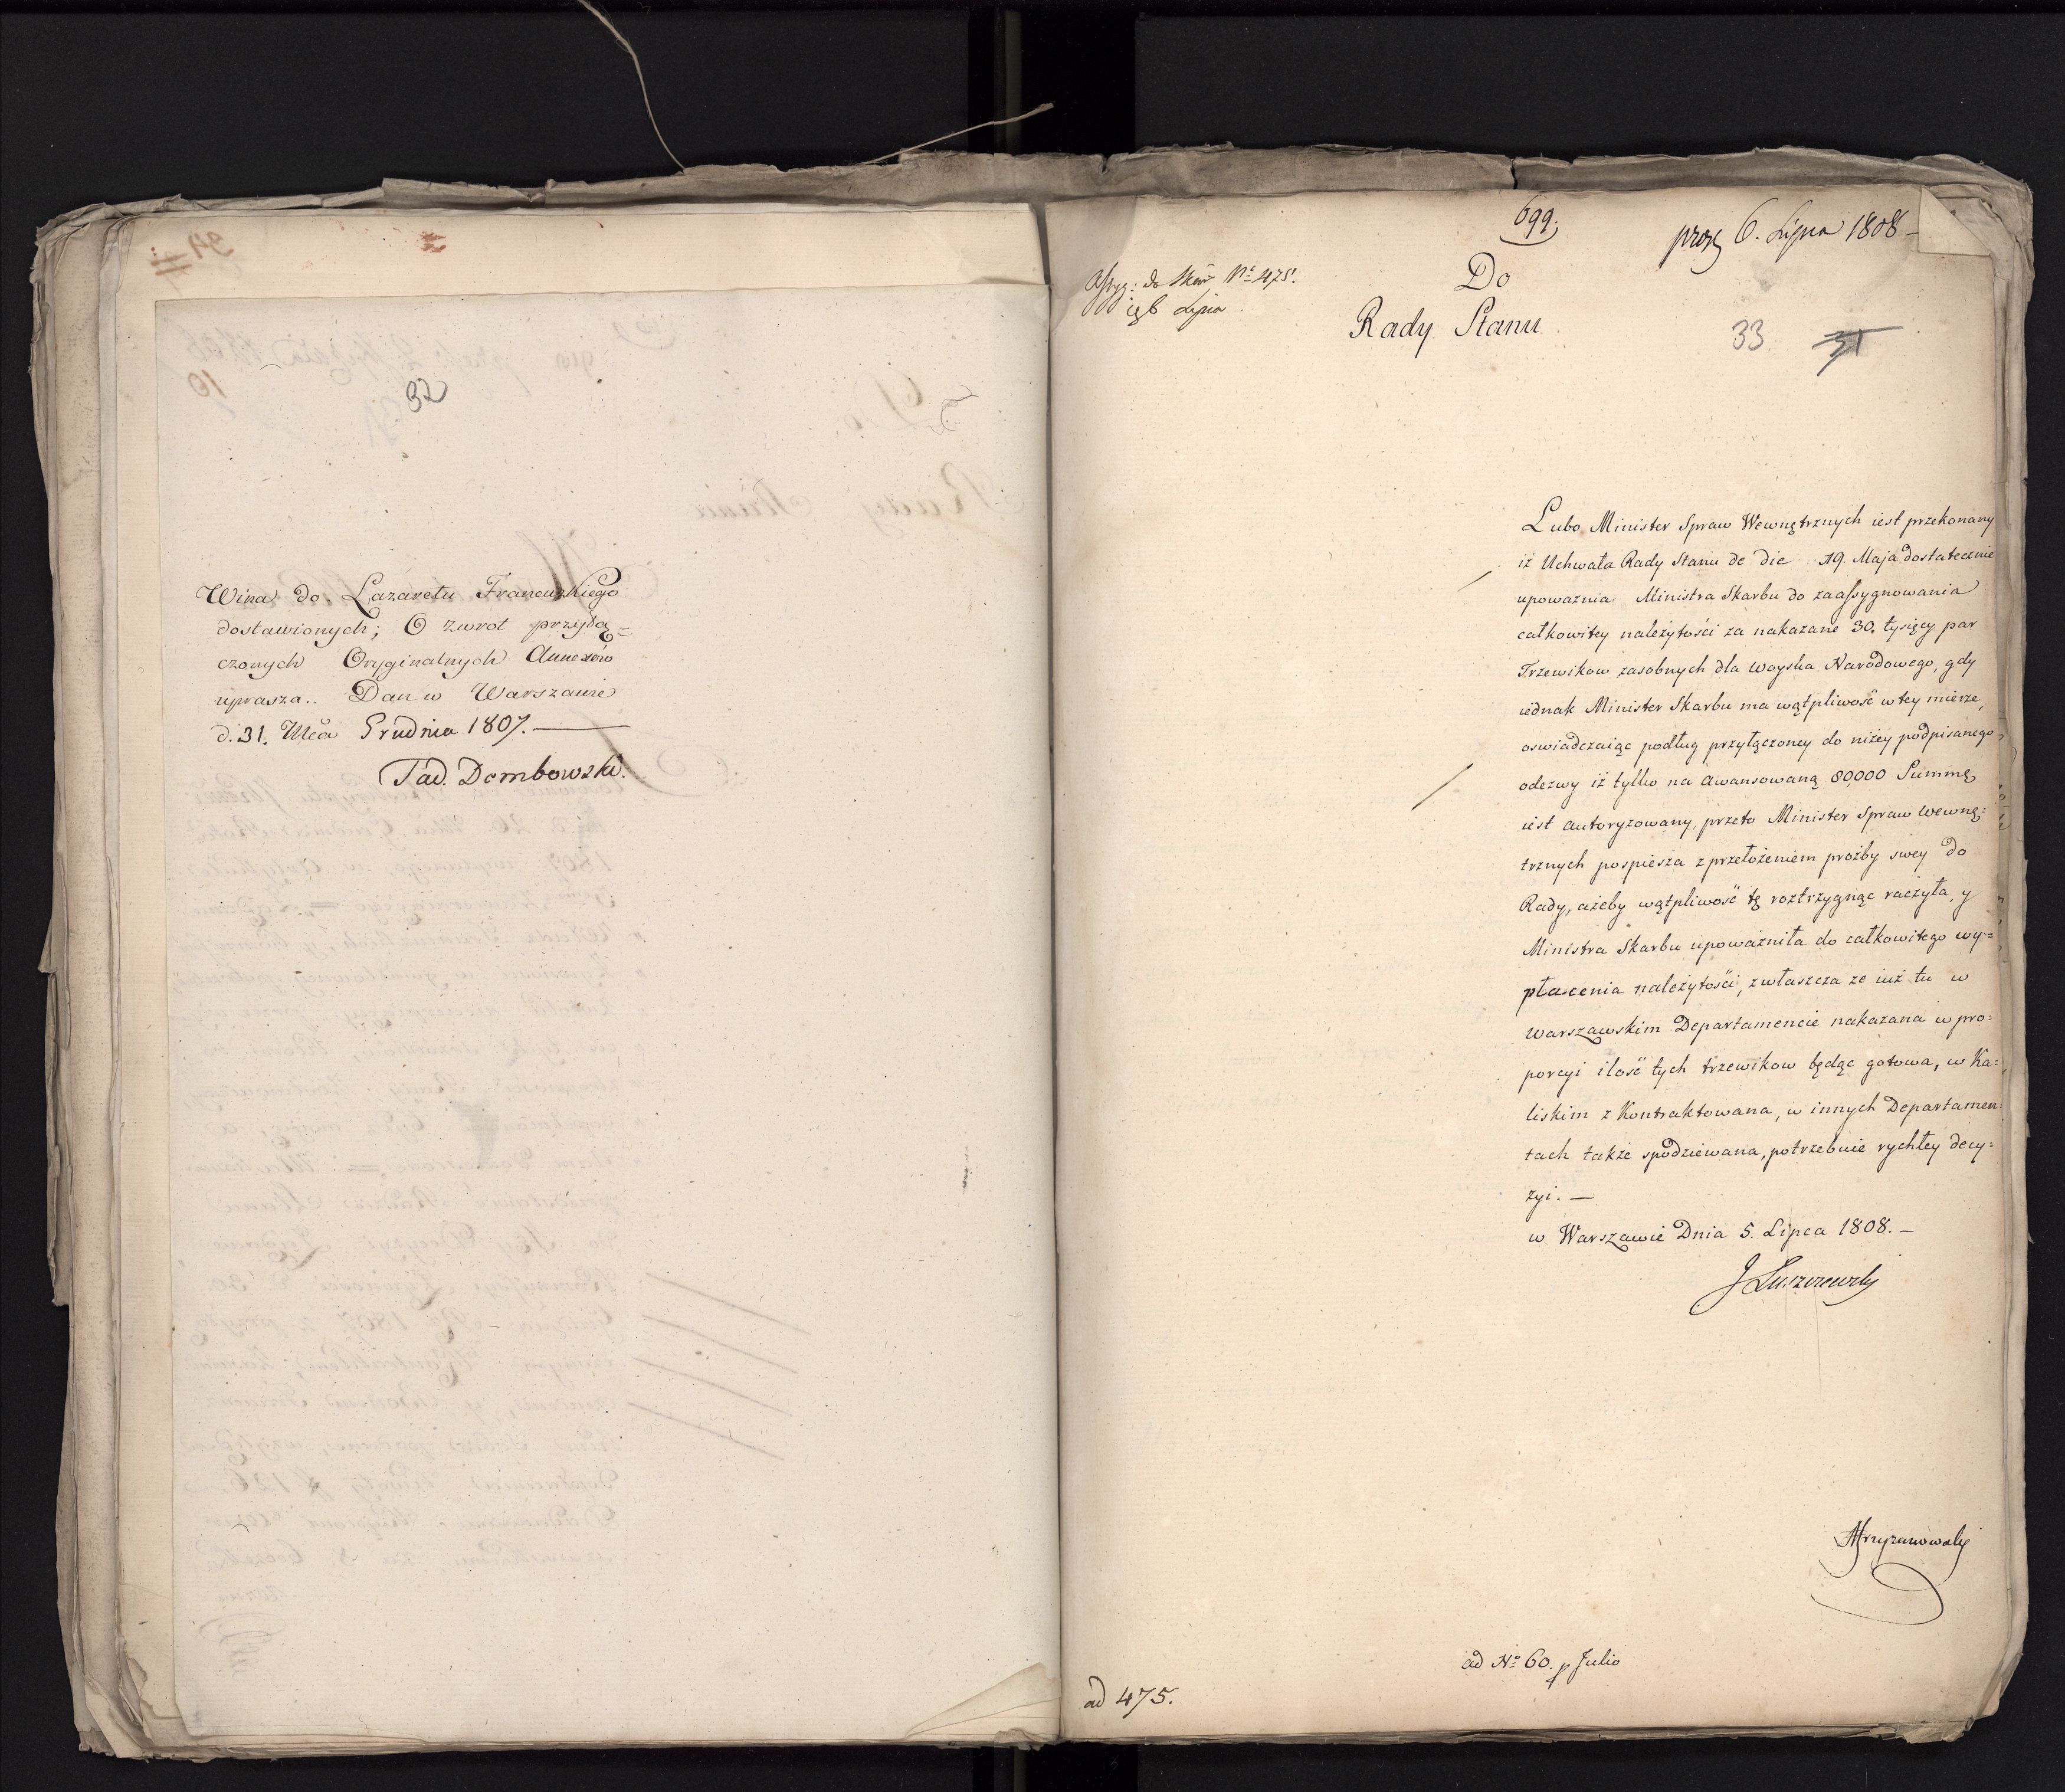 32
Wina do Lazaretu Francuzkiego
dostawionych; O zwrot przyłą=
czonych Oryginalnych Annexów
uprasza.. Dan w Warszawie
d. 31. Mca Grudnia 1807.—
Tad. Dembowski.
699.
prez 6. Lipca 1808 –
do Skar Nº 475.
6 Lipca
Do
Rady Stanu
33 31
Lubo Minister Spraw Wewnętrznych iest przekonany
iż Uchwała Rady Stanu de die 19. Maja dostatecznie
upoważnia Ministra Skarbu do zaassygnowania
całkowitey należytości za nakazane 30. tysięcy par
Trzewikow zasobnych dla woyska Narodowego, gdy
iednak Minister Skarbu ma wątpliwość w tey mierze,
oswiadczaiąc podług przyłączoney do niżey podpisanego
odezwy iż tylko na awansowaną 80,000 Summę
iest autoryzowany, przeto Minister Spraw wewnę:
trznych pospiesza z przełożeniem prożby swey do
Rady, ażeby wątpliwość tę roztrzygnąc raczyła, y
Ministra Skarbu upoważniła do całkowitego wy=
płacenia należytości, zwłaszcza ze iuż tu w
Warszawskim Departamencie nakazana w pro:
porcyi ilość tych trzewikow będąc gotowa, w Ka=
liskim z Kontraktowana, w innych Departamen:
tach także spodziewana, potrzebuie rychłey decy=
zyi. —
w Warszawie Dnia 5. Lipca 1808. –
J Łuszczewski
ad Nº 60. p Julio
ad 475.